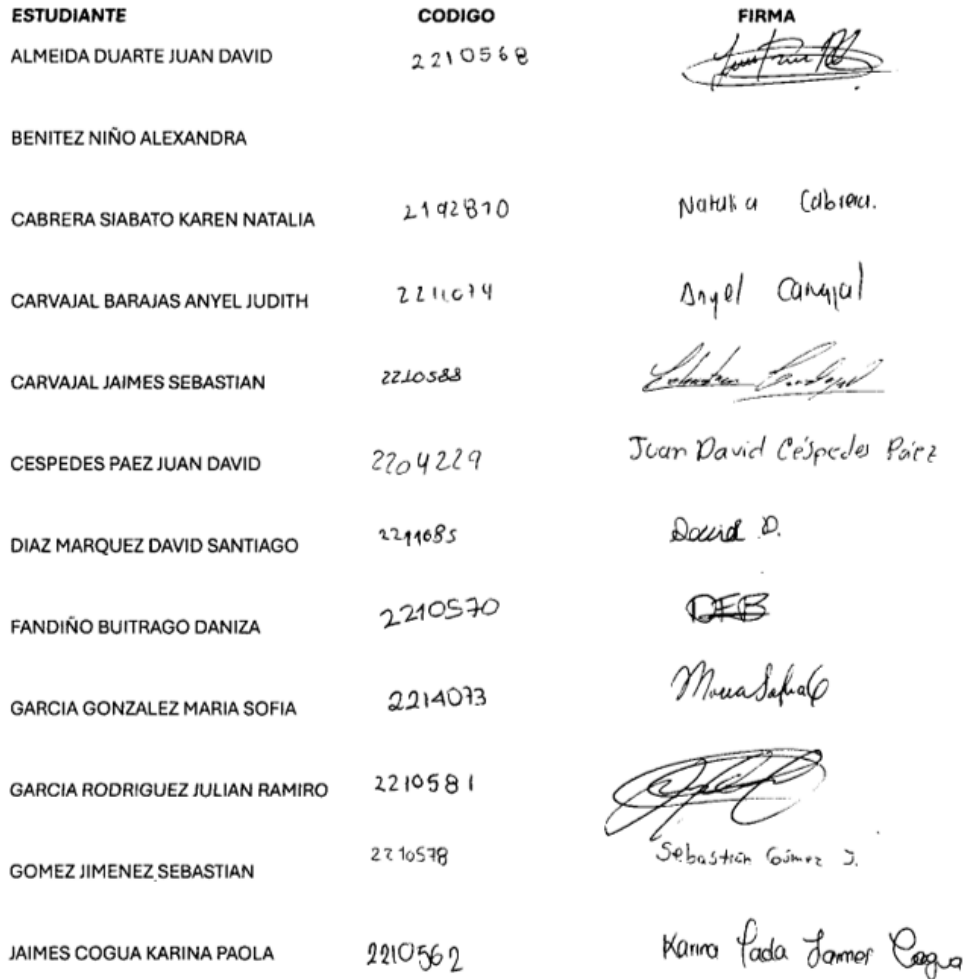 ESTUDIANTE CODIGO FIRMA
ALMEIDA DUARTE JUAN DAVID 2210568
BENITEZ NIÑO ALEXANDRA
CABRERA SIABATO KAREN NATALIA 2192870 Natalia Cabrera.
CARVAJAL BARAJAS ANYEL JUDITH Anyel Carvajal
CARVAJAL JAIMES SEBASTIAN 2210588 Sebastian Carvajal
CESPEDES PAEZ JUAN DAVID 2204229 Juan David Céspedes Páez
DIAZ MARQUEZ DAVID SANTIAGO 2211685 David D.
FANDIÑO BUITRAGO DANIZA 2210570 DFB
GARCIA GONZALEZ MARIA SOFIA 2214073 Maria Sofia G
GARCIA RODRIGUEZ JULIAN RAMIRO 2210581
GOMEZ JIMENEZ SEBASTIAN 2210578 Sebastián Gómez J.
JAIMES COGUA KARINA PAOLA 2210562 Karina Paola Jaimes Cogua